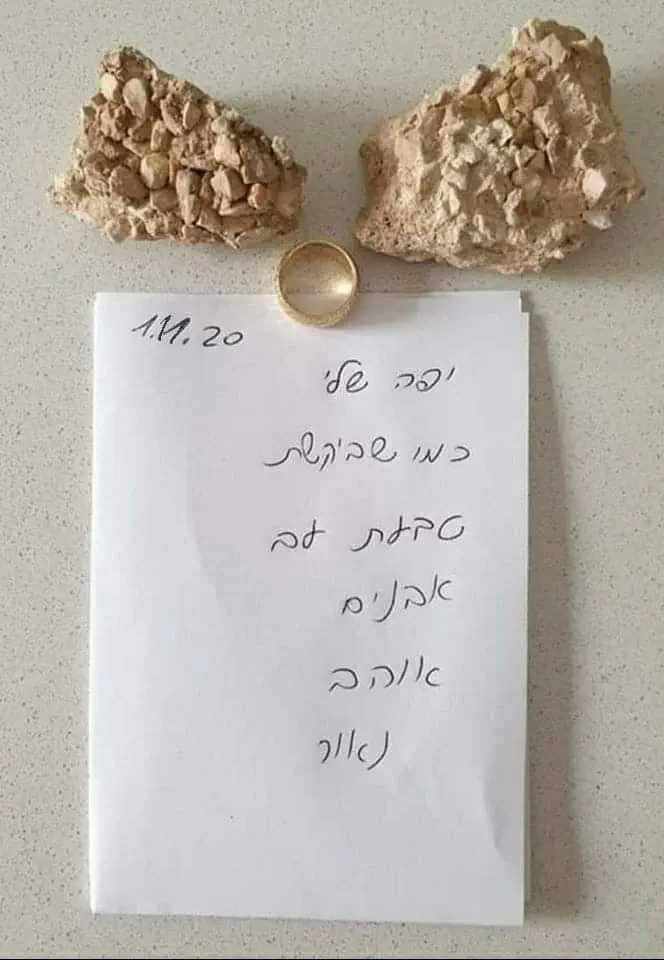 1.11.20
יפה שלי
כמו שביקשת
טבעת עם
אבנים
אוהב
נאור